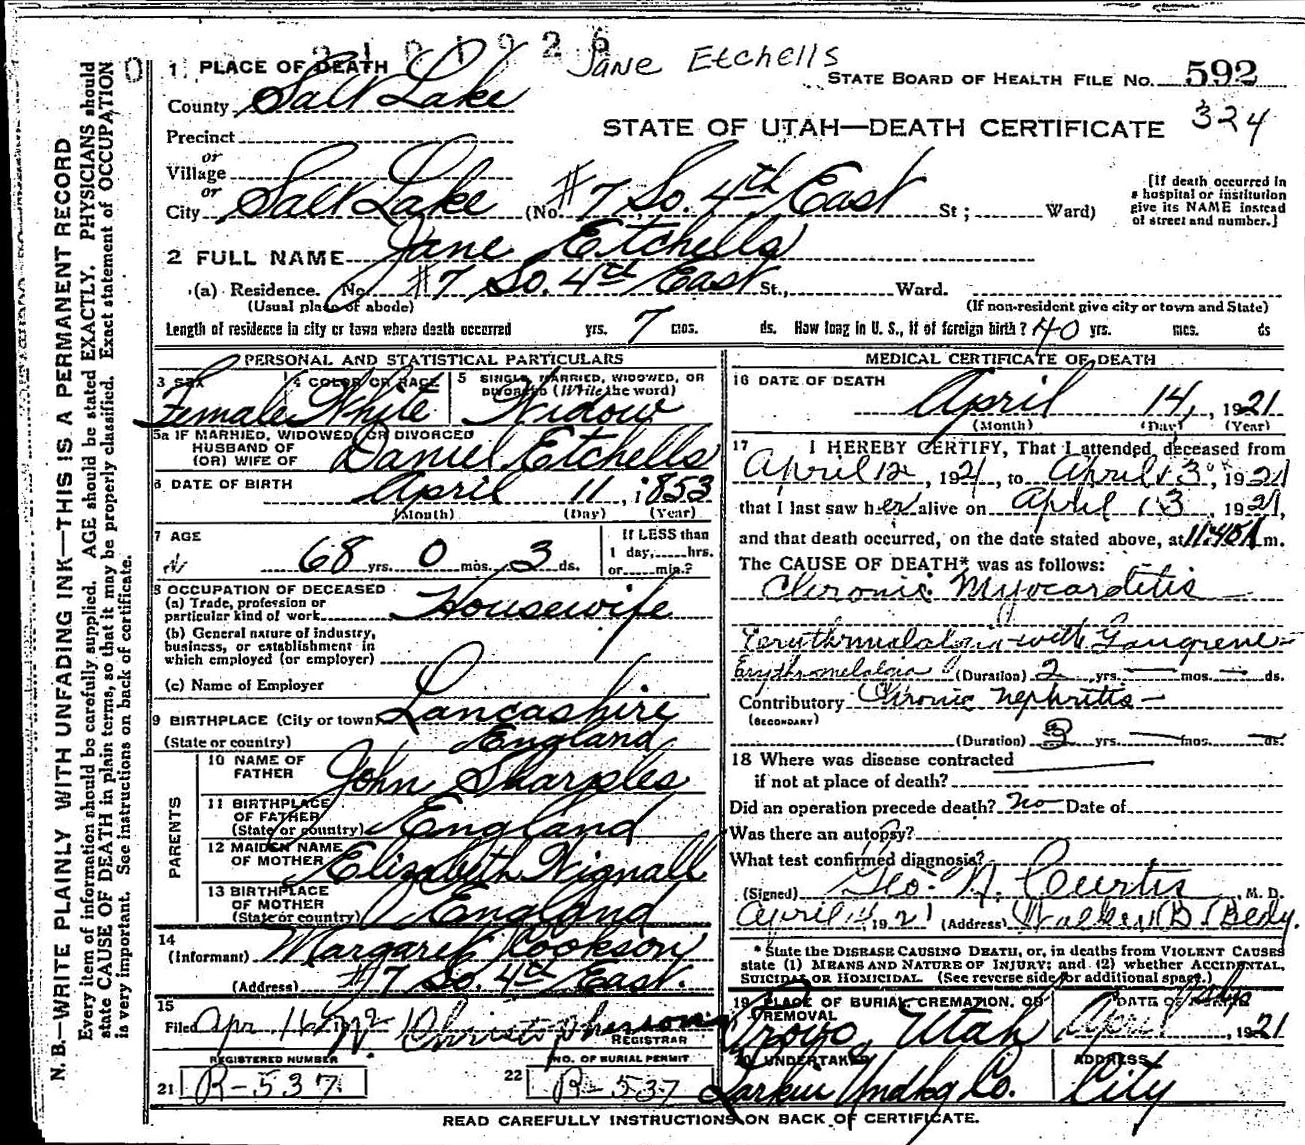 Jane Etchells
1 PLACE OF DEATH
STATE BOARD OF HEALTH FILE No. 592
324
County Salt Lake
STATE OF UTAH—DEATH CERTIFICATE
Precinct
or
Village
or
City Salt Lake (No. #7 So. 4th East St; Ward)
[If death occurred in
a hospital or institution
give its NAME instead
of street and number.]
2 FULL NAME Jane Etchells
(a) Residence. No. #7 So. 4th East St., Ward.
(Usual place of abode) (If non-resident give city or town and State)
Length of residence in city or town where death occurred yrs. 7 mos. ds. How long in U. S., if of foreign birth? 40 yrs. mos. ds
PERSONAL AND STATISTICAL PARTICULARS
3 SEX 4 COLOR OR RACE 5 SINGLE, MARRIED, WIDOWED, OR
DIVORCED (Write the word)
Female White Widow
5a IF MARRIED, WIDOWED, OR DIVORCED
HUSBAND OF
(OR) WIFE OF Daniel Etchells
6 DATE OF BIRTH April 11, 1853
(Month) (Day) (Year)
7 AGE
68 yrs. 0 mos. 3 ds.
If LESS than
1 day, hrs.
or min.?
8 OCCUPATION OF DECEASED
(a) Trade, profession or
particular kind of work Housewife
(b) General nature of industry,
business, or establishment in
which employed (or employer)
(c) Name of Employer
9 BIRTHPLACE (City or town) Lancashire
(State or country) England
PARENTS
10 NAME OF
FATHER John Sharples
11 BIRTHPLACE
OF FATHER
(State or country) England
12 MAIDEN NAME
OF MOTHER Elizabeth Wignall
13 BIRTHPLACE
OF MOTHER
(State or country) England
14
(Informant) Margaret Cookson
(Address) #7 So. 4th East.
15
Filed Apr 16
REGISTRAR
REGISTERED NUMBER
21 R-537
NO. OF BURIAL PERMIT
22 R-537
MEDICAL CERTIFICATE OF DEATH
16 DATE OF DEATH
April 14, 1921
(Month) (Day) (Year)
17 I HEREBY CERTIFY, That I attended deceased from
April 12, 1921, to April 13, 1921
that I last saw her alive on April 13, 1921,
and that death occurred, on the date stated above, at 11:45A m.
The CAUSE OF DEATH* was as follows:
Chronic Myocarditis
Erythromelalgia with Gangrene
Erythromelalgia (Duration) 2 yrs. mos. ds.
Contributory Chronic nephritis
(SECONDARY)
(Duration) 3 yrs. mos. ds.
18 Where was disease contracted
if not at place of death?
Did an operation precede death? no Date of
Was there an autopsy?
What test confirmed diagnosis?
(Signed) Geo. N. Curtis, M. D.
April 14, 1921 (Address) Walker B. Bldg.
*State the DISEASE CAUSING DEATH, or, in deaths from VIOLENT CAUSES
state (1) MEANS AND NATURE OF INJURY; and (2) whether ACCIDENTAL,
SUICIDAL OR HOMICIDAL. (See reverse side for additional space.)
19 PLACE OF BURIAL, CREMATION, OR
REMOVAL
Provo, Utah
DATE OF
April, 1921
20 UNDERTAKER
Larkin Undkg Co.
ADDRESS
City
READ CAREFULLY INSTRUCTIONS ON BACK OF CERTIFICATE.
N. B.—WRITE PLAINLY WITH UNFADING INK—THIS IS A PERMANENT RECORD
Every item of information should be carefully supplied. AGE should be stated EXACTLY. PHYSICIANS should
state CAUSE OF DEATH in plain terms, so that it may be properly classified. Exact statement of OCCUPATION
is very important. See instructions on back of certificate.